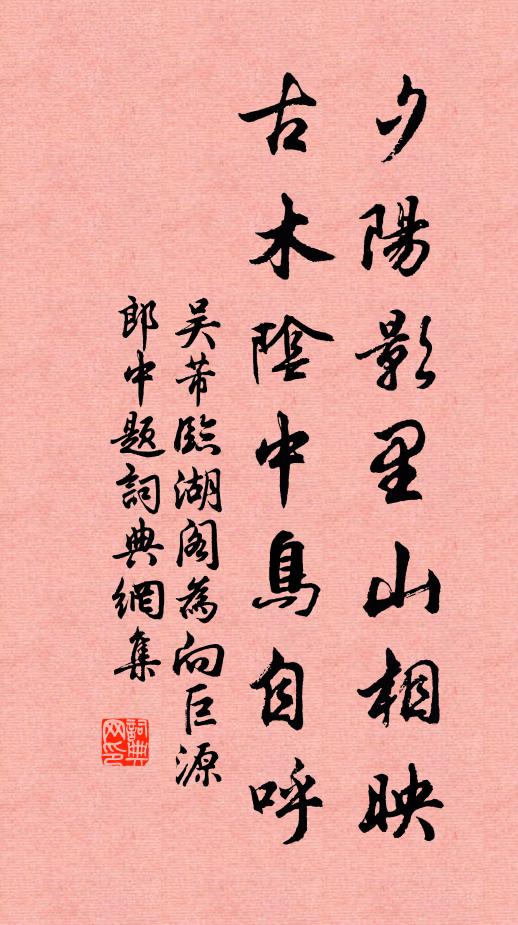 夕陽影里山相映
古木陰中鳥自呼
吴芾臨湖阁為向巨源
郎中題詞典網集
詞典网印